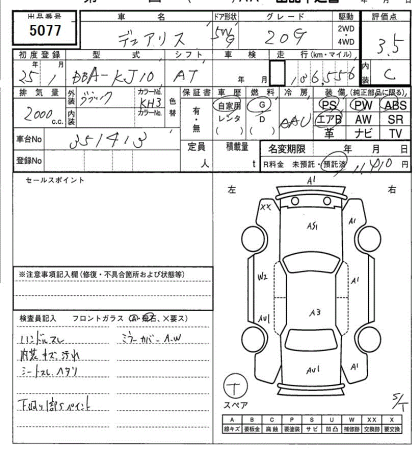 出品番号 車名 ドア形状 グレード 駆動 評価点
5077 デュアリス 5W 20G 2WD・4WD 3.5
初度登録 型式 シフト 車検 走行(km・マイル) 内装
25年 1月 DBA-KJ10 AT 年 月 106,556 C
排気量 外装 ブラック カラーNo. KH3 色替 保証書 車歴 燃料 冷房 装備(純正部品に限る)
2000 c.c. 内装 カラーNo. 有・無 自家用 レンタ G D AAC PS PW ABS
エアB AW SR
革 ナビ TV
車台No 351413 定員 人 積載量 t 名変期限 年 月 日
登録No R料金 未預託・預託済 11410 円
セールスポイント
左 右
A1
XX A1
AS1
W2 A1
A3
AU1 A1
AU1
スペア
S/T
※注意事項記入欄(修復・不具合箇所および状態等)
検査員記入 フロントガラス(A・飛石、×要ス)
ハンドルスレ ミラーカバーA・W
内装キズ、汚れ
シートスレ、ヘタリ
下回り1部Sペイント
A B C P S U W XX X
線キズ 要板金 腐蝕 要塗装 サビ 凹凸 補修跡 交換跡 要交換